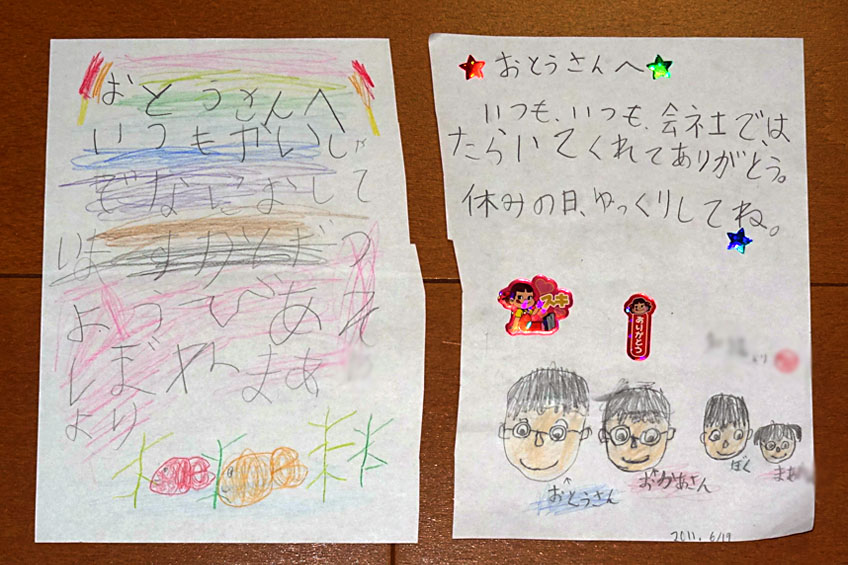 おとうさんへ
いつもかいしゃ
でなにおして
いますかどお
ようびあそ
ぼおね まあ
より
おとうさんへ
いつも、いつも、会社では
たらいてくれてありがとう。
休みの日、ゆっくりしてね。
スキ
ありがとう
より
おとうさん
おかあさん
ぼく
まあ
2011. 6/19